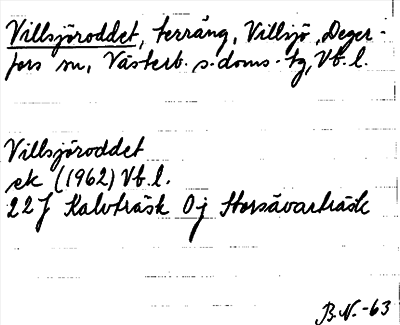 Villsjöroddet, terräng, Villsjö, Deger-
fors sn, Västerb. s. doms. tg, Vb. l.
Villsjöroddet
ek (1962) Vb. l.
22J Kalvträsk 0j Storsävarträsk
B.N.-63